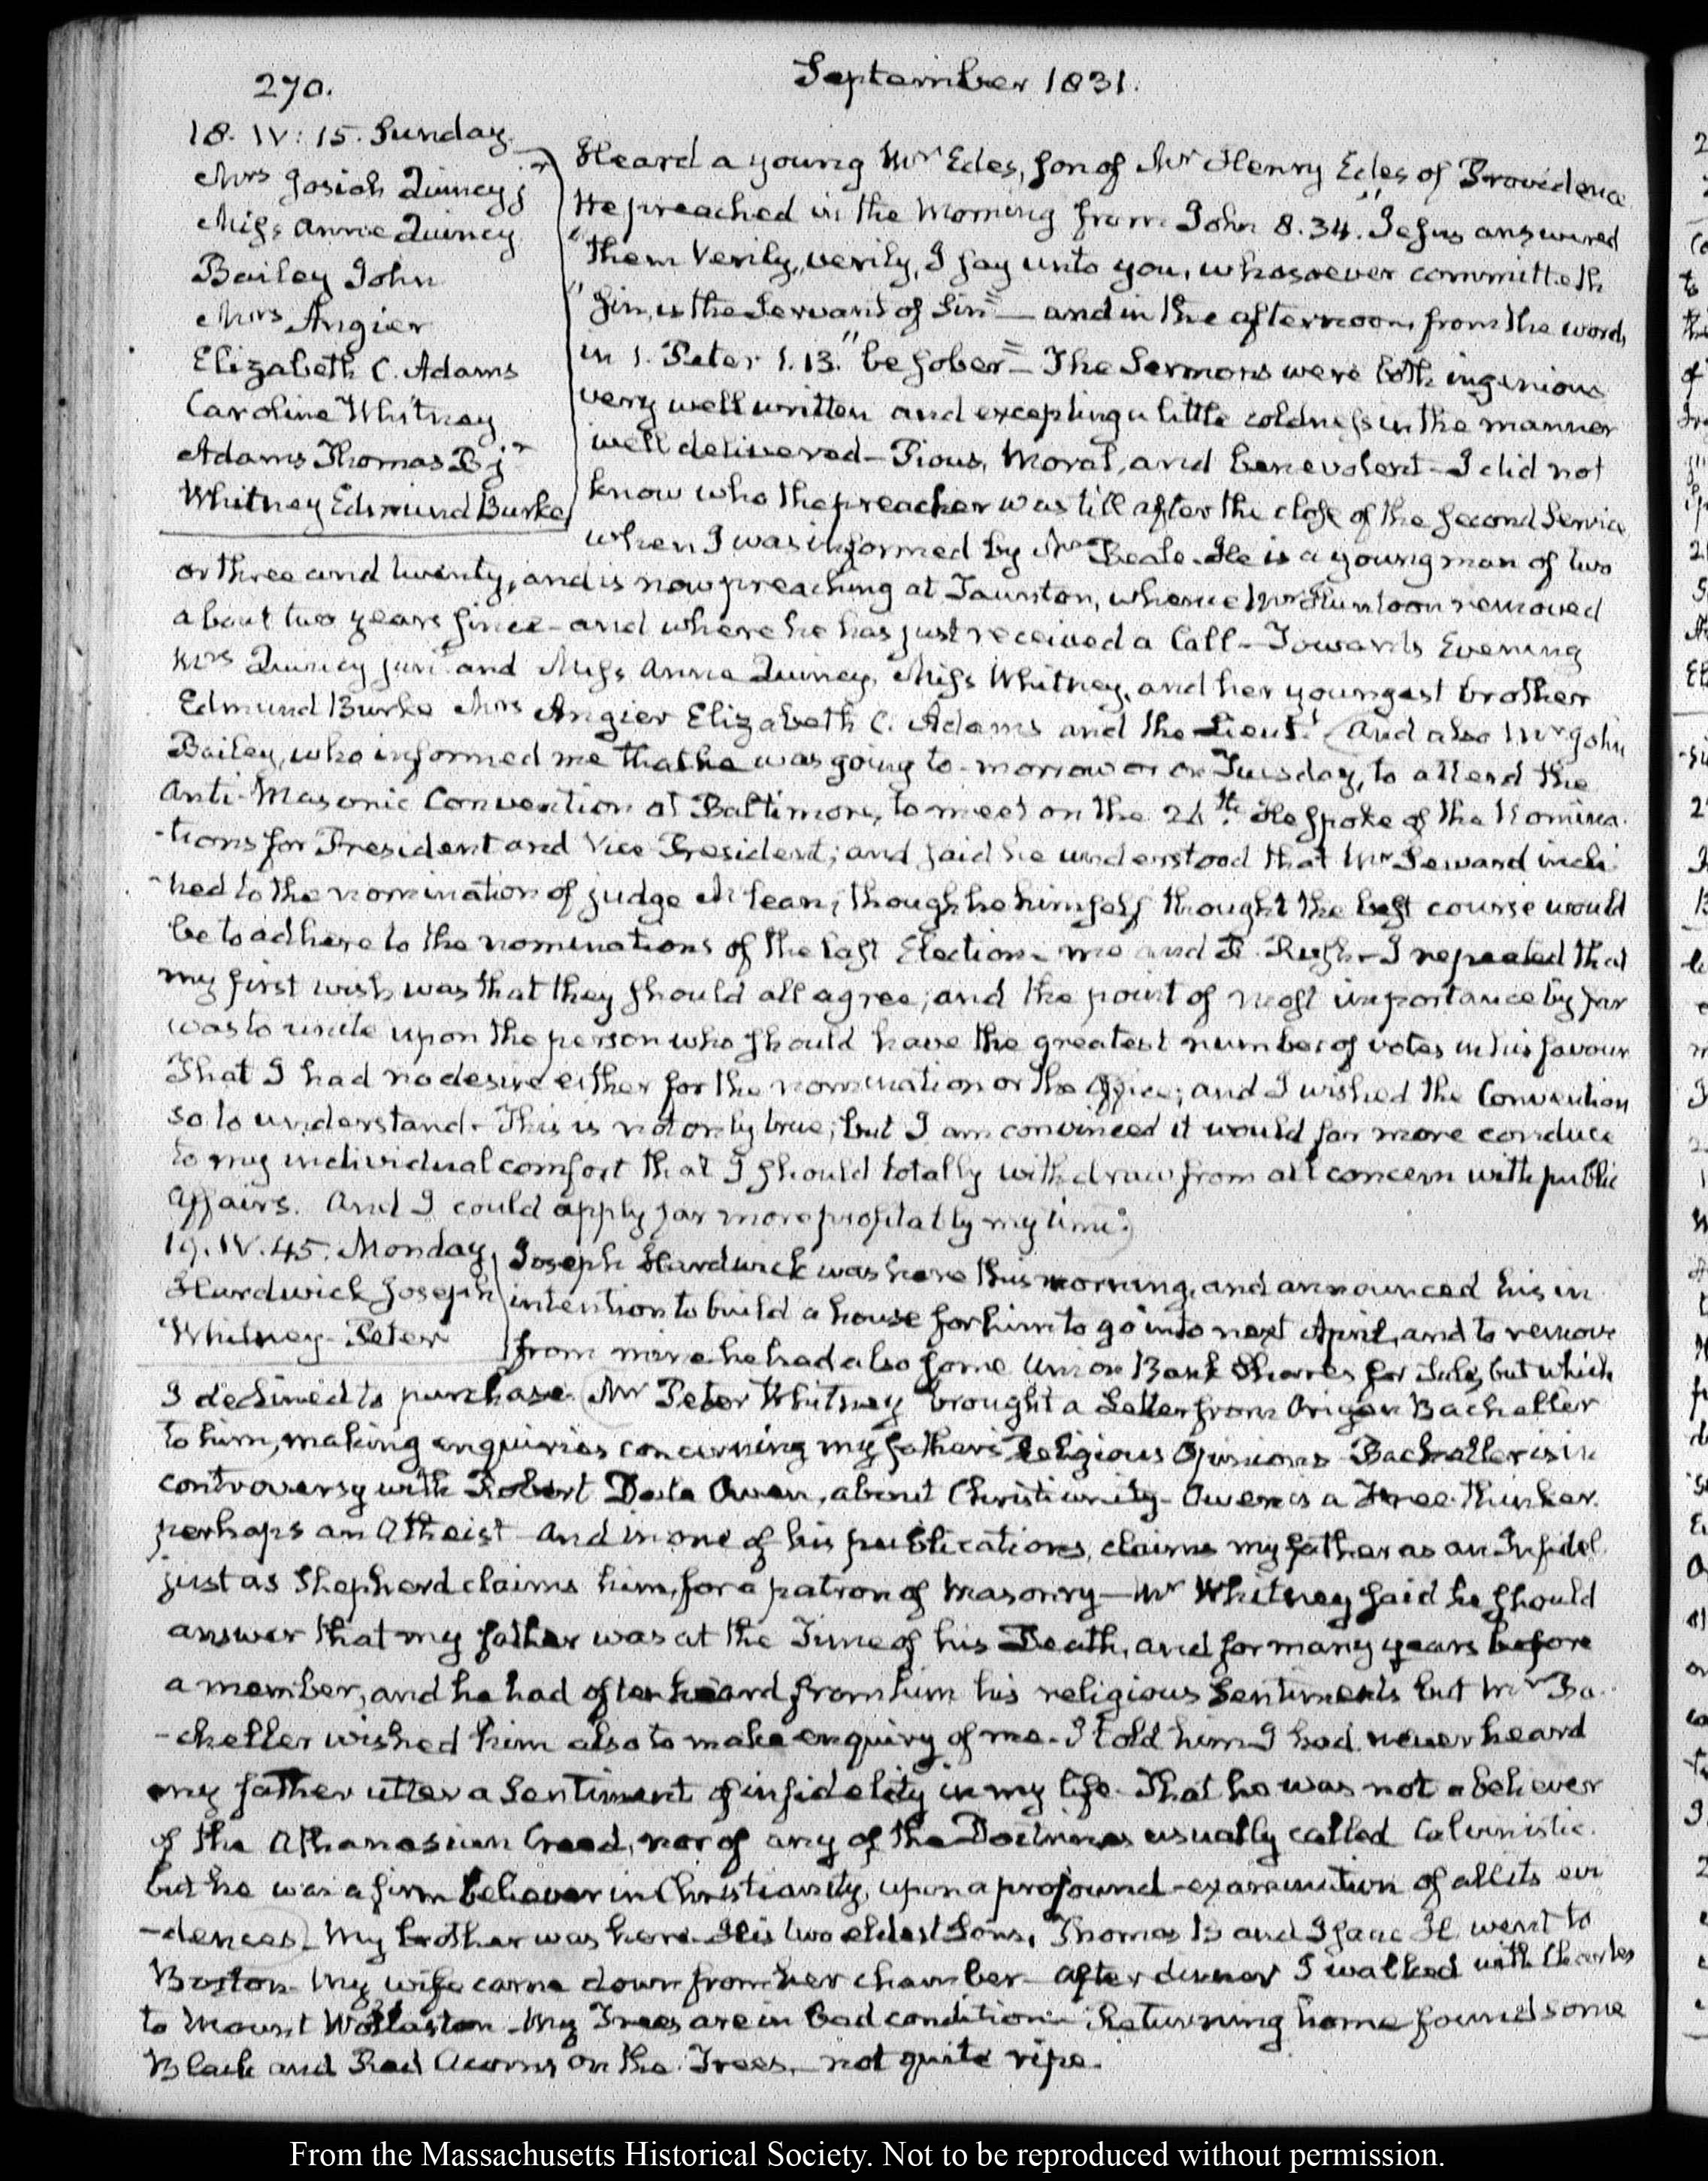 270.
September 1831.
18. IV: 15. Sunday.
Mrs Josiah Quincy jr
Miss Anne Quincy
Bailey John
Mrs Angier
Elizabeth C. Adams
Caroline Whitney
Adams Thomas B jr
Whitney Edmund Burke
Heard a young Mr Edes, son of Mr Henry Edes of Providence
He preached in the Morning from John 8.34. "Jesus answered
"them Verily, verily, I say unto you, whosoever committeth
"sin, is the Servant of Sin" — and in the afternoon, from the words
in 1. Peter 1.13. "be sober" — The Sermons were both ingenious
very well written and excepting a little coldness in the manner
well delivered — Pious, Moral, and benevolent — I did not
know who the preacher was till after the close of the second Service
when I was informed by Mr Beale. He is a young man of two
or three and twenty, and is now preaching at Taunton, whence Mr Huntoon removed
about two years since — and where he has just received a Call — Towards Evening
Mrs Quincy junr and Miss Anne Quincy, Miss Whitney, and her youngest brother
Edmund Burke Mrs Angier Elizabeth C. Adams and the Lieut. And also Mr John
Bailey, who informed me that he was going to-morrow or on Tuesday, to attend the
Anti-Masonic Convention at Baltimore, to meet on the 26th. He spoke of the Nomina-
-tions for President and Vice President; and said he understood that Mr Seward incli-
-ned to the nomination of judge McLean; though he himself thought the best course would
be to adhere to the nominations of the last Election — me and R. Rush — I repeated that
my first wish was that they should all agree; and the point of most importance by far
was to unite upon the person who should have the greatest number of votes in his favour
That I had no desire either for the nomination or the Office; and I wished the Convention
so to understand — This is not only true; but I am convinced it would far more conduce
to my individual comfort that I should totally withdraw from all concern with public
Affairs. And I could apply far more profitably my time.
19. IV. 45. Monday.
Hardwick Joseph
Whitney - Peter
Joseph Hardwick was here this morning, and announced his in
intention to build a house for him to go into next April, and to remove
from mine. he had also some Union Bank Shares for Sale, but which
I declined to purchase. Mr Peter Whitney brought a Letter from Origen Bacheller
to him, making enquiries concerning my father's Religious Opinions — Bacheller is in
controversy with Robert Dale Owen, about Christianity — Owen is a Free-thinker.
perhaps an Atheist — And in one of his publications, claims my father as an Infidel.
just as Shepherd claims him, for a patron of Masonry — Mr Whitney said he should
answer that my father was at the Time of his Death, and for many years before
a member, and he had often heard from him his religious Sentiments but Mr Ba-
-cheller wished him also to make enquiry of me — I told him I had never heard
my father utter a Sentiment of infidelity in my life. That he was not a believer
of the Athanasian Creed, nor of any of the Doctrines usually called Calvinistic.
but he was a firm believer in Christianity, upon a profound examination of all its evi
-dences — My brother was here. His two eldest Sons, Thomas B and Isaac H. went to
Boston — My wife came down from her chamber — After dinner I walked with Charles
to Mount Wollaston — My Trees are in bad condition — Returning home found some
Black and Red Acorns on the Trees — not quite ripe.
From the Massachusetts Historical Society. Not to be reproduced without permission.